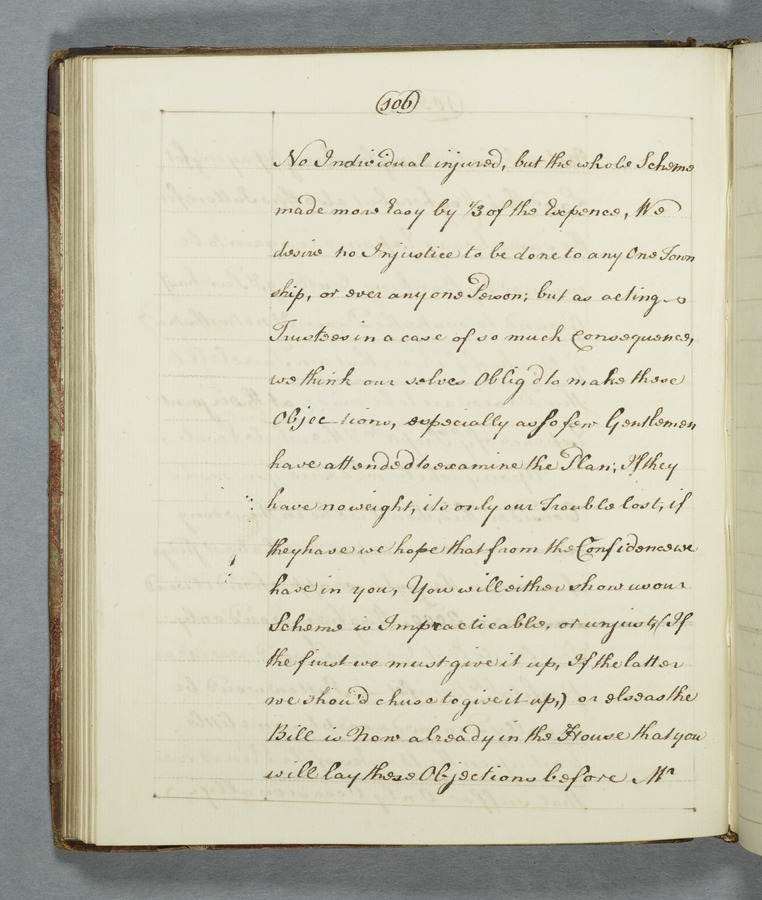 (106)
No Individual injured, but the whole Scheme
made more Easy by 1/3 of the Expence, We
desire no Injustice to be done to any One Town
ship, or ever any one Person; but as acting
Trustees in a case of so much Consequence,
we think our selves Oblig'd to make these
Objections, especially as so few Gentlemen
have attended to examine the Plan; If they
have no weight, its only our Trouble lost, if
they have we hope that from the Confidence we
have in you, You will either show us our
Scheme is Impracticable, or unjust, (If
the first we must give it up, If the latter
we shou'd chuse to give it up,) or else as the
Bill is Now already in the House that you
will lay these Objections before Mr